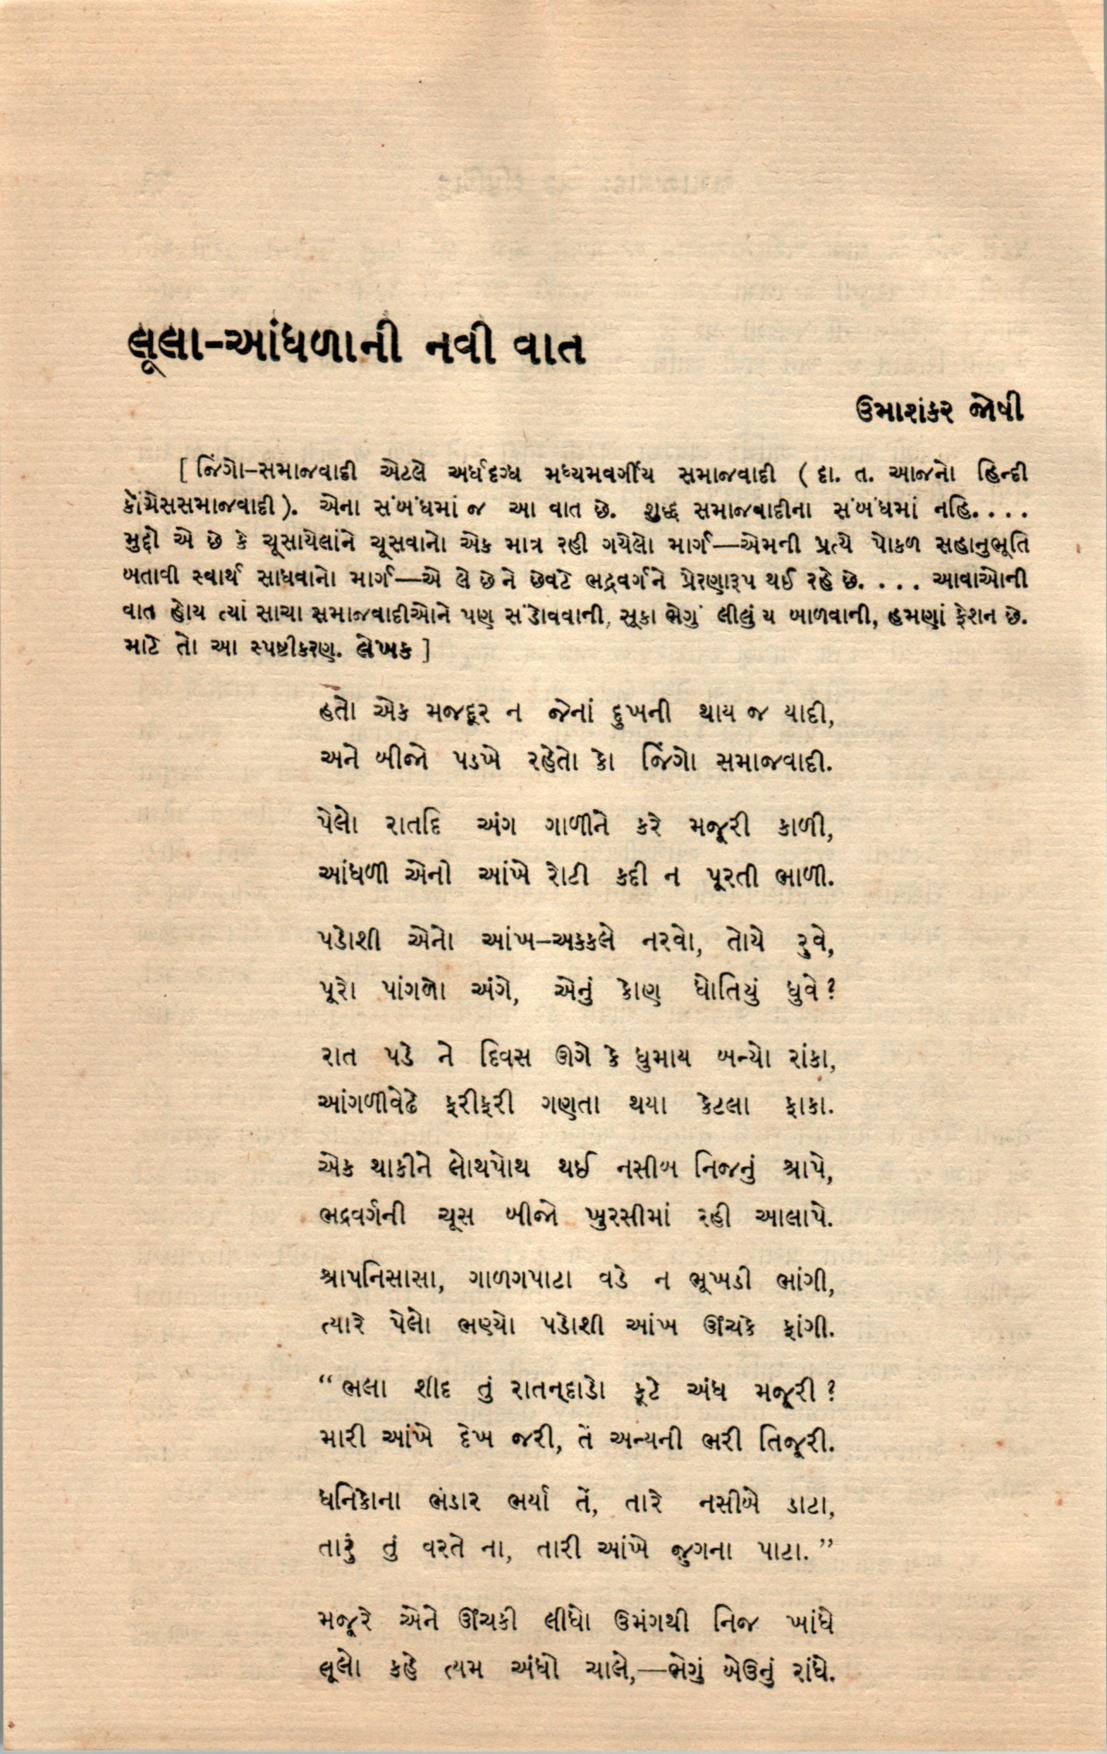 લૂલા-આંધળાની નવી વાત
ઉમાશંકર જોષી
[ જિંગો-સમાજવાદી એટલે અર્ધદગ્ધ મધ્યમવર્ગીય સમાજવાદી ( દા. ત. આજનો હિન્દી
કોંગ્રેસસમાજવાદી ). એના સંબંધમાં જ આ વાત છે. શુદ્ધ સમાજવાદીના સંબંધમાં નહિ. . . .
મુદ્દો એ છે કે ચૂસાયેલાંને ચૂસવાનો એક માત્ર રહી ગયેલો માર્ગ—એમની પ્રત્યે પોકળ સહાનુભૂતિ
બતાવી સ્વાર્થ સાધવાનો માર્ગ—એ લે છે ને છેવટે ભદ્રવર્ગને પ્રેરણારૂપ થઈ રહે છે. . . . આવાઓની
વાત હોય ત્યાં સાચા સમાજવાદીઓને પણ સંડોવવાની, સૂકા ભેગું લીલું ય બાળવાની, હમણાં ફેશન છે.
માટે તો આ સ્પષ્ટીકરણ. લેખક ]
હતો એક મજદૂર ન જેનાં દુખની થાય જ યાદી,
અને બીજો પડખે રહેતો કો જિંગો સમાજવાદી.
પેલો રાતદિ અંગ ગાળીને કરે મજૂરી કાળી,
આંધળી એની આંખે રોટી કદી ન પૂરતી ભાળી.
પડોશી એનો આંખ-અક્કલે નરવો, તોયે રુવે,
પૂરો પાંગળો અંગે, એનું કોણ ધોતિયું ધુવે?
રાત પડે ને દિવસ ઊગે કે ધુમાય બન્યો રાંકા,
આંગળીવેઢે ફરીફરી ગણતા થયા કેટલા ફાકા.
એક થાકીને લોથપોથ થઈ નસીબ નિજનું શ્રાપે,
ભદ્રવર્ગની ચૂસ બીજો ખુરસીમાં રહી આલાપે.
શ્રાપનિસાસા, ગાળગપાટા વડે ન ભૂખડી ભાંગી,
ત્યારે પેલો ભણ્યો પડોશી આંખ ઊંચકે ફાંગી.
“ ભલા શીદ તું રાતન્દાડો કૂટે અંધ મજૂરી ?
મારી આંખે દેખ જરી, તેં અન્યની ભરી તિજૂરી.
ધનિકોના ભંડાર ભર્યા તેં, તારે નસીબે ડાટા,
તારું તું વરતે ના, તારી આંખે જુગના પાટા. ”
મજૂરે એને ઊંચકી લીધો ઉમંગથી નિજ ખાંધે
લૂલો કહે ત્યમ અંધો ચાલે,—ભેગું બેઉનું રાંધે.